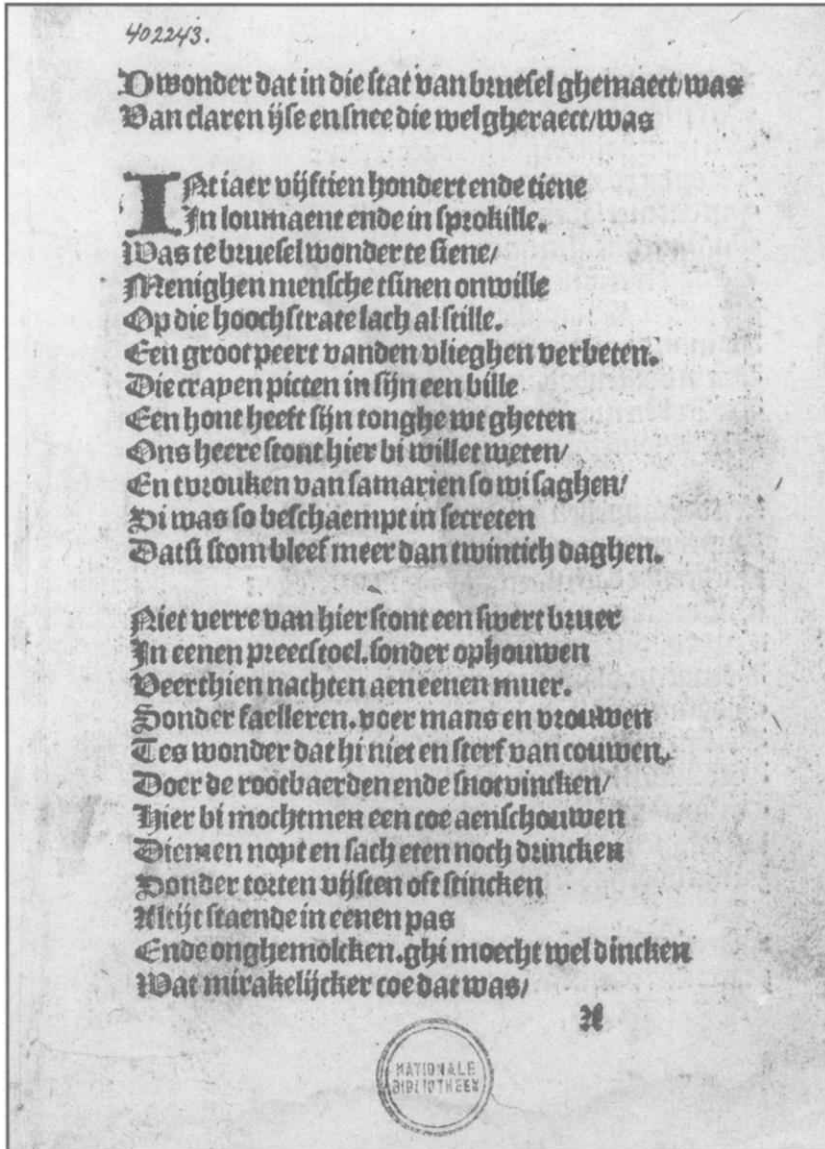 402243.
Dwonder dat in die stat van bruesel ghemaect/was
Van claren ijse en snee die wel gheraect/was
INt iaer vijftien hondert ende tiene
In loumaent ende in sprokille.
Was te bruesel wonder te siene/
Menighen mensche tsinen onwille
Op die hoochstrate lach al stille.
Een groot peert vanden vlieghen verbeten.
Die crayen picten in sijn een bille
Een hont heeft sijn tonghe wt gheten
Ons heere stont hier bi willet weten/
En tvrouken van samarien so wi saghen/
Si was so beschaempt in secreten
Datsi stom bleef meer dan twintich daghen.
Niet verre van hier stont een swert bruer
In eenen preecstoel.sonder ophouwen
Veerthien nachten aen eenen muer.
Sonder faelleren.voer mans en vrouwen
Tes wonder dat hi niet en sterf van couwen/
Doer de rootbaerden ende snotvincken/
Hier bi mochtmen een coe aenschouwen
Diemen noyt en sach eten noch drincken
Sonder torten vijsten oft stincken
Altijt staende in eenen pas
Ende onghemolcken.ghi moecht wel dincken
Wat mirakelijcker coe dat was/
A
NATIONALE
BIBLIOTHEEK